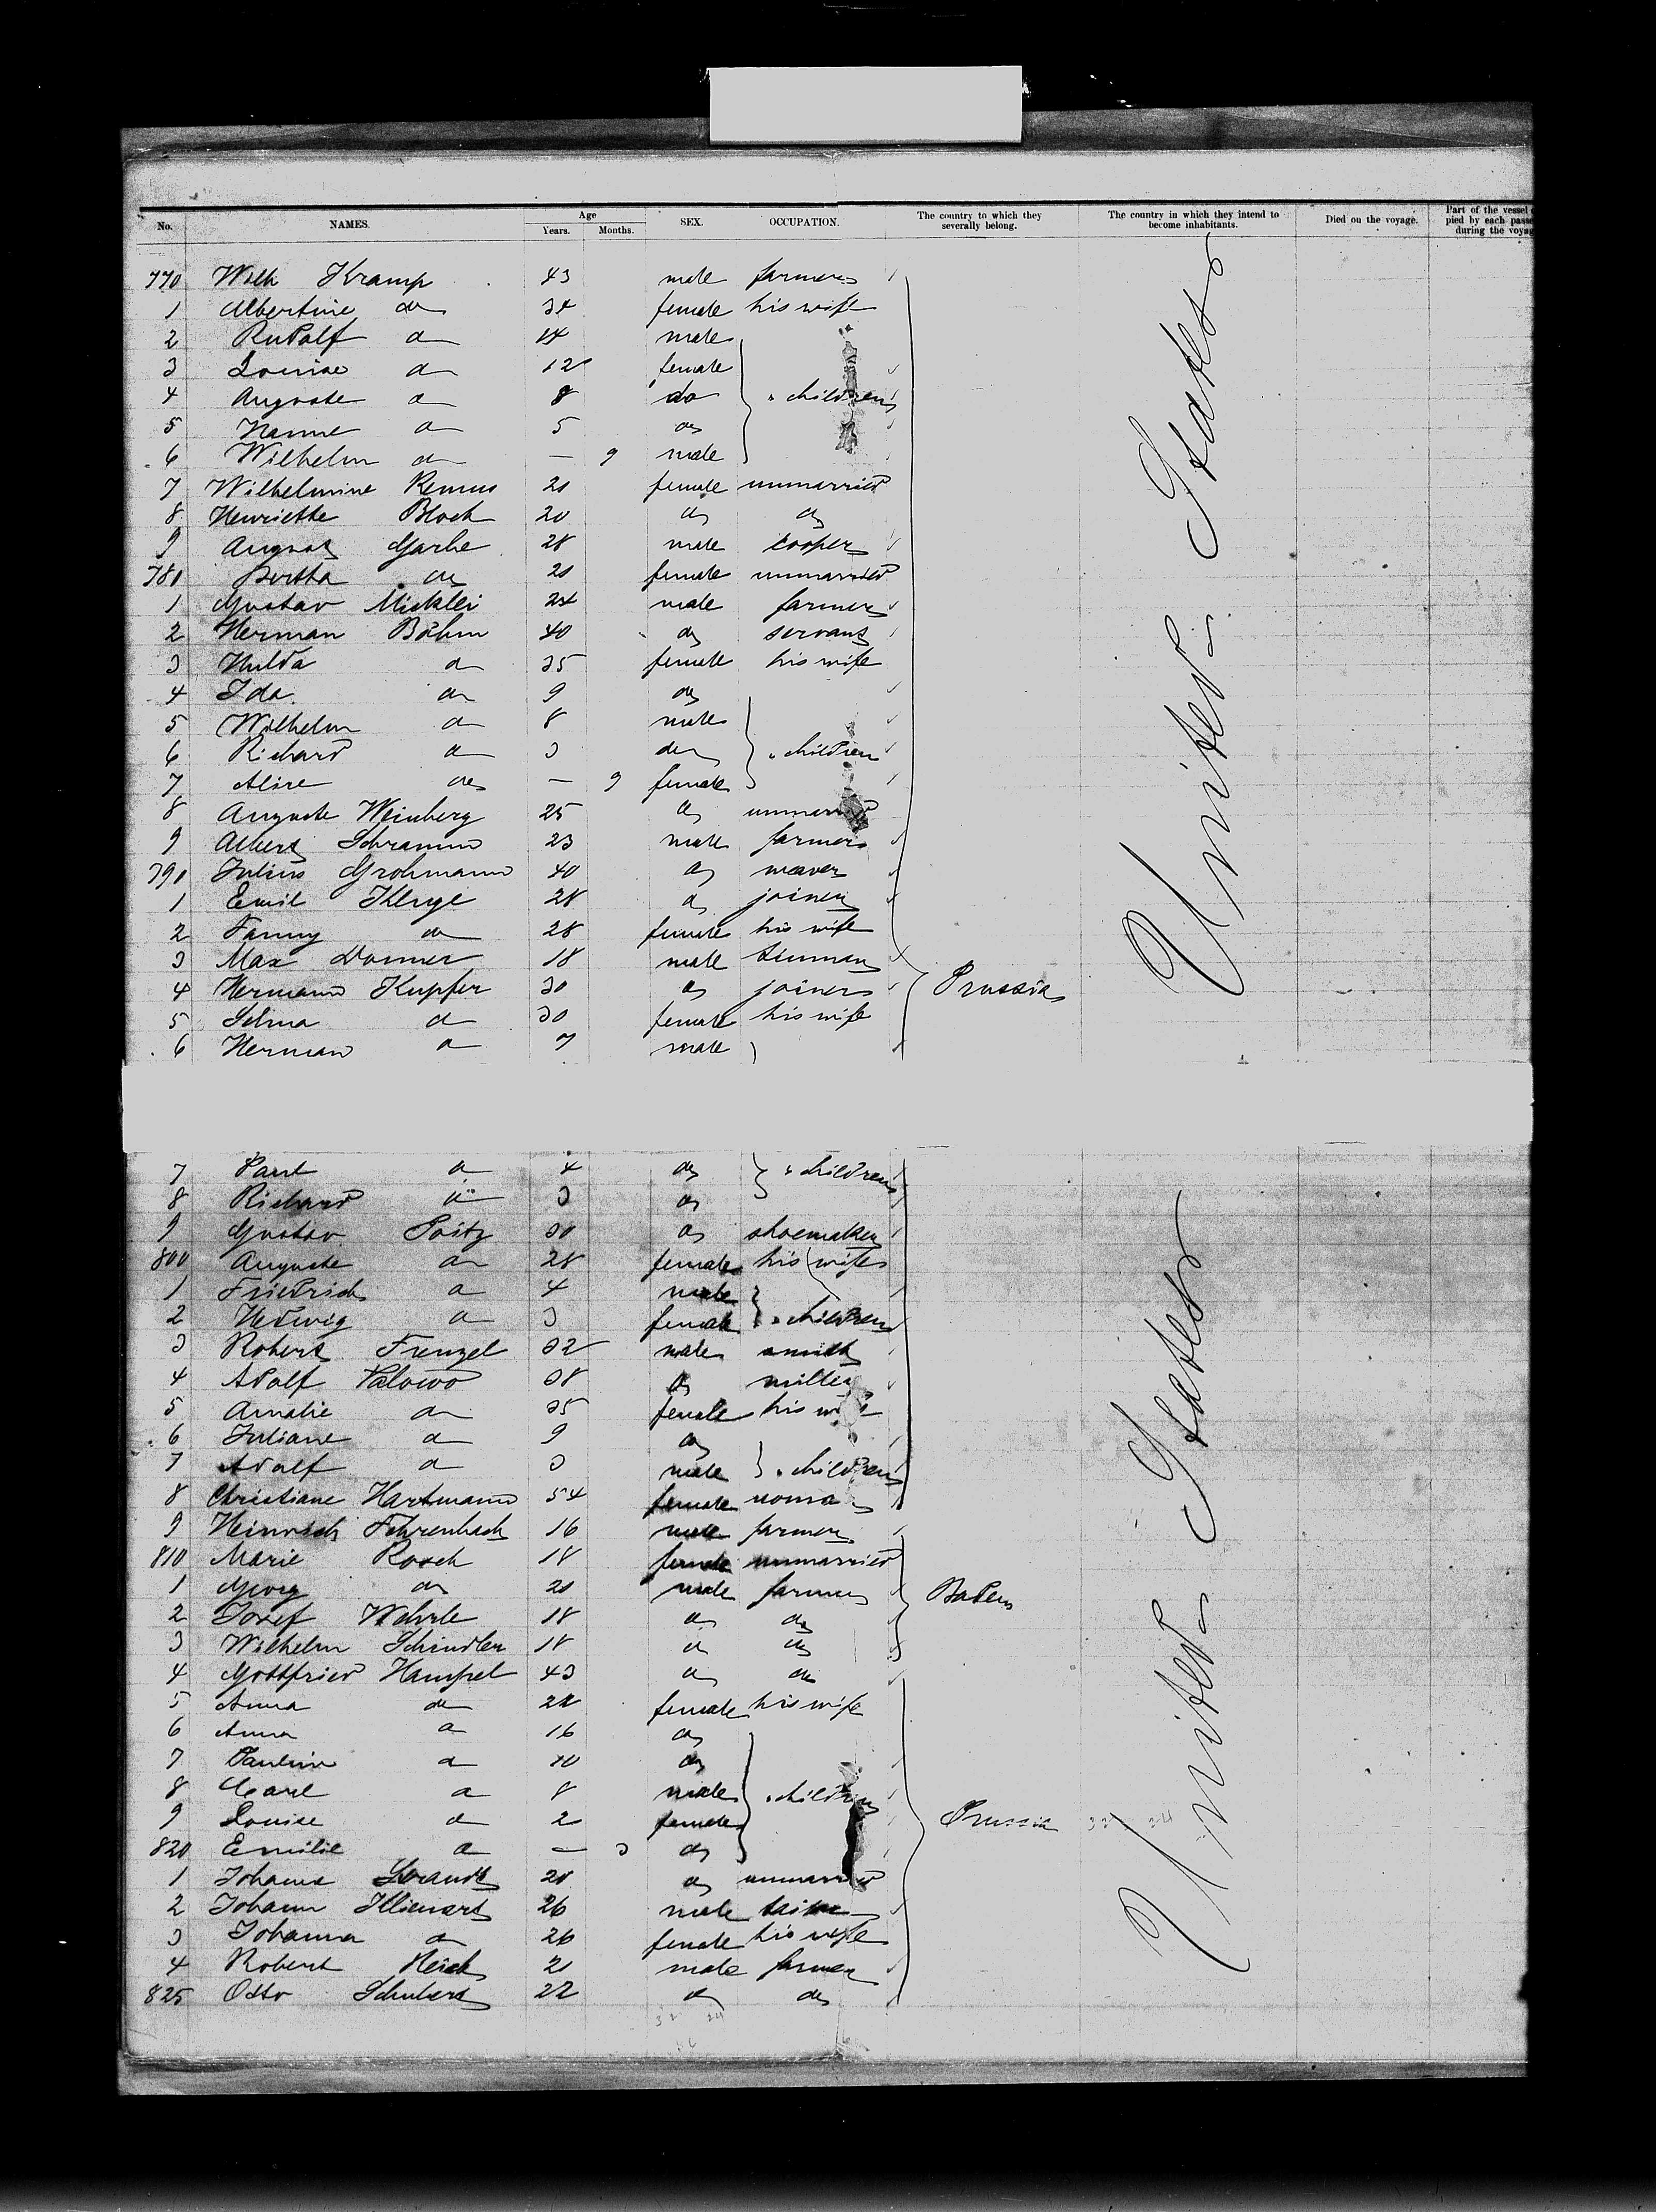 No. NAMES. Age Years. Months. SEX. OCCUPATION. The country to which they severally belong. The country in which they intend to become inhabitants. Died on the voyage. Part of the vessel pied by each during the
770 Wilh Kramp 43 male farmer
1 Albertine do 34 female his wife
2 Rudolf do 14 male
3 Louise do 12 female
4 Auguste do 8 do children
5 Hanne do 5 do
6 Wilhelm do — 9 male
7 Wilhelmine Remus 21 female unmarried
8 Henriette Block 20 do do
9 August Garbe 28 male cooper
780 Bertha do 21 female unmarried
1 Gustav Micklei 24 male farmer
2 Herman Böhm 40 do servant
3 Hulda do 35 female his wife
4 Ida do 9 do
5 Wilhelm do 8 male
6 Richard do 3 do children
7 Alise do — 9 female
8 Auguste Weinberg 25 do unmarried
9 Albert Schramm 23 male farmer
790 Julius Grohmann 40 do weaver
1 Emil Kluge 28 do joiner
2 Fanny do 28 female his wife
3 Max Donner 18 male
4 Hermann Kupfer 30 do joiner Prussia
5 Selma do 30 female his wife
6 Herman do 7 male
United States
7 Paul do 4 do children
8 Richard do 3 do
9 Gustav 30 do shoemaker
800 Auguste do 28 female his wife
1 Friedrich do 4 male
2 Hedwig do 3 female children
3 Robert Frenzel 32 male smith
4 Adolf 38 do miller
5 Amalie do 35 female his
6 Juliane do 9 do
7 Adolf do 3 male children
8 Christiane Hartmann 54 female
9 Heinrich Fehrenbach 16 male farmer
810 Marie Rosch 18 female unmarried
1 Georg do 21 male farmer Baden
2 Josef Wehrle 18 do do
3 Wilhelm Schindler 18 do do
4 Gottfried Hampel 43 do do
5 Anna do female his wife
6 Anna do 16 do
7 Pauline do 10 do
8 Carl do 8 male children
9 Louise do 2 female Prussia
820 Emilie do — 3 do
1 Johanna do unmarried
2 Johann 26 male
3 Johanna do 26 female his wife
4 Robert 21 male farmer
825 Otto Schubert 22 do do
United States